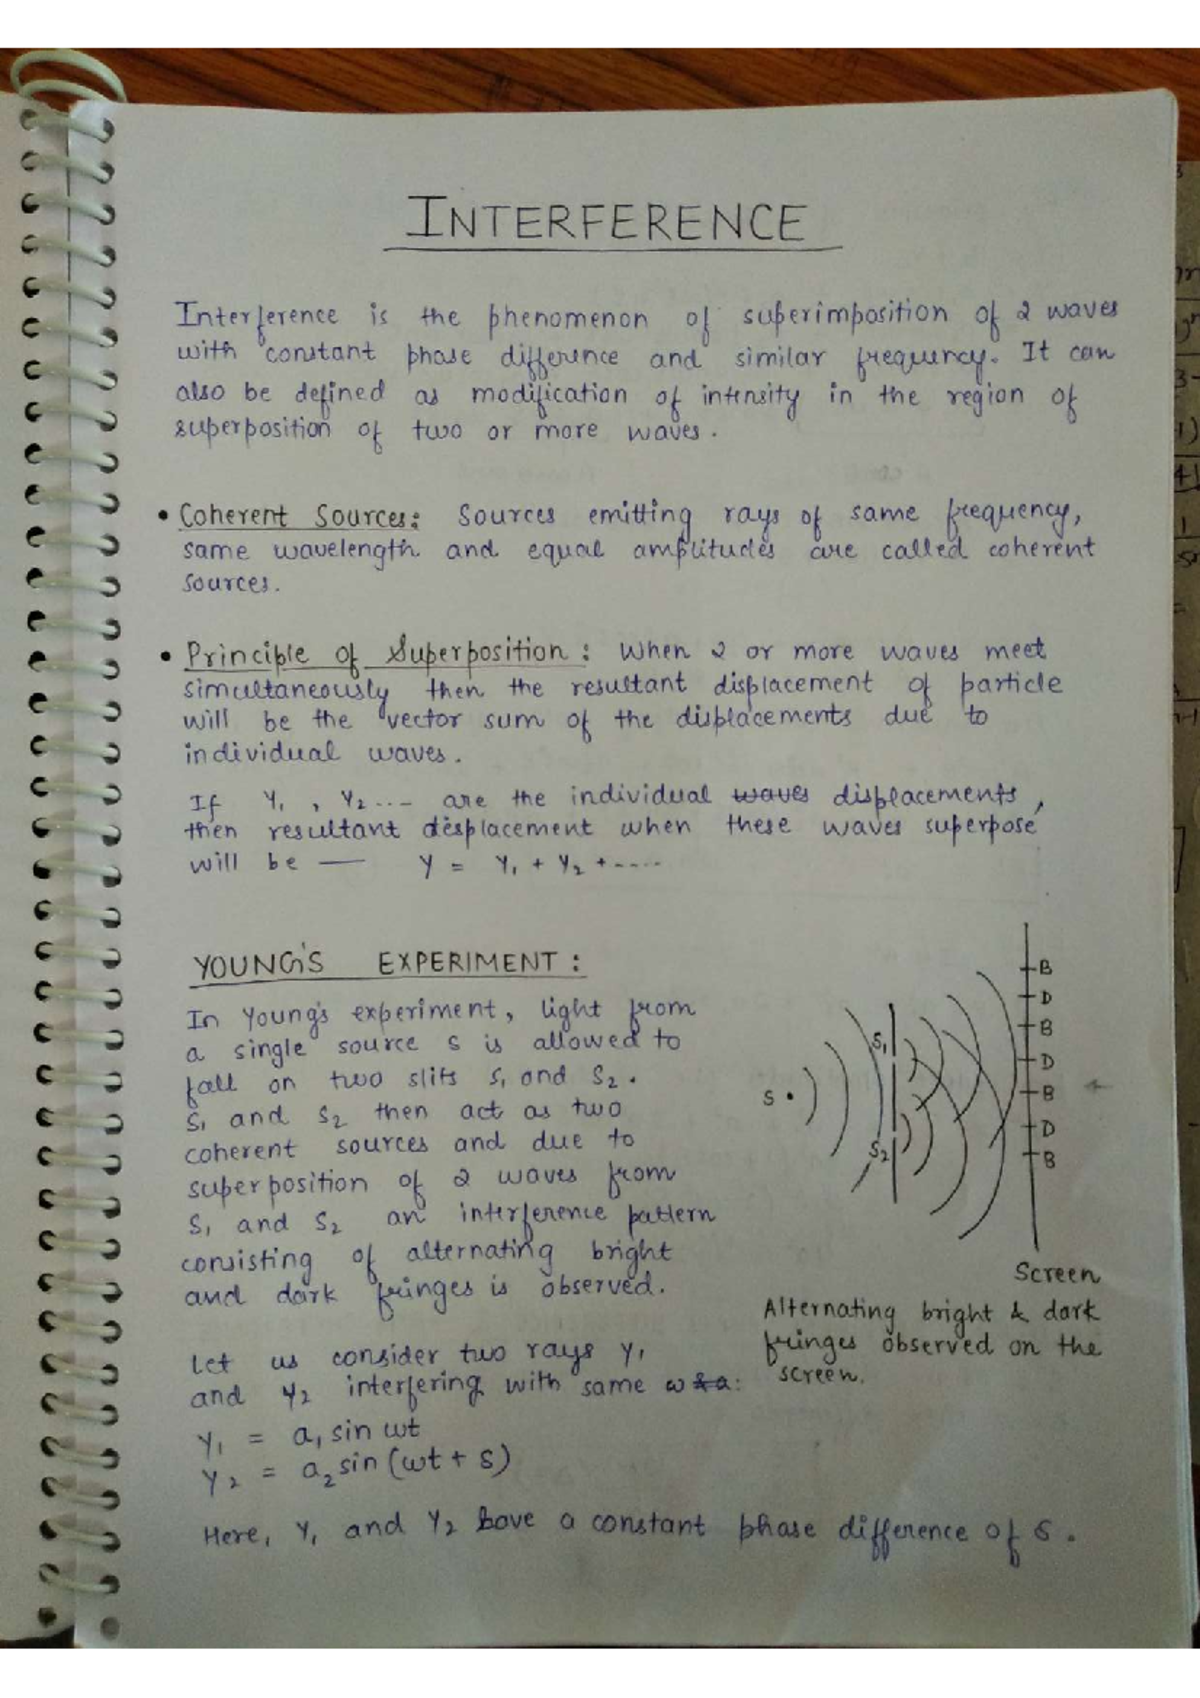 INTERFERENCE
Interference is the phenomenon of superimposition of 2 waves
with constant phase difference and similar frequency. It can
also be defined as modification of intensity in the region of
superposition of two or more waves.
• Coherent Sources: Sources emitting rays of same frequency,
same wavelength and equal amplitudes are called coherent
sources.
• Principle of Superposition: When 2 or more waves meet
simultaneously then the resultant displacement of particle
will be the vector sum of the displacements due to
individual waves.
If Y₁, Y₂ ... are the individual ~~waves~~ displacements,
then resultant displacement when these waves superpose
will be — Y = Y₁ + Y₂ + .....
YOUNG'S EXPERIMENT:
In Young's experiment, light from
a single source s is allowed to
fall on two slits S₁ and S₂.
S₁ and S₂ then act as two
coherent sources and due to
superposition of 2 waves from
S₁ and S₂ an interference pattern
consisting of alternating bright
and dark fringes is observed.
S
S₁
S₂
B
D
B
D
B
D
B
Screen
Alternating bright & dark
fringes observed on the
screen.
Let us consider two rays Y₁
and Y₂ interfering with same ω ~~& a~~:
Y₁ = a₁ sin ωt
Y₂ = a₂ sin (ωt + δ)
Here, Y₁ and Y₂ have a constant phase difference of δ.